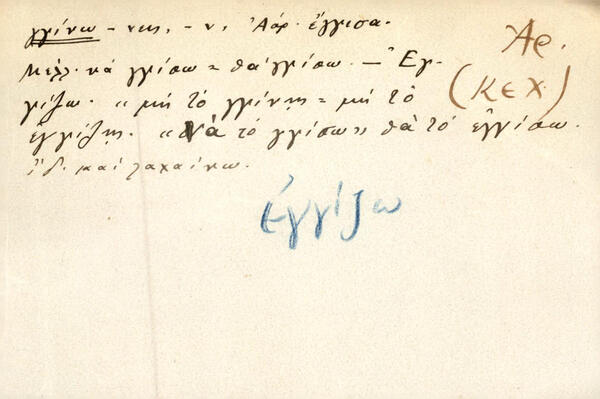 γγίνω – νεις, – ν, Ἀόρ. ἔγγισα.
Μέλλ. νά γγίσω = θά γγίσω. — Ἐγ-
γίζω. « μή τό γγίνης = μή τό
ἐγγίζης. « νὰ τό γγίσω » θά τό ἐγγίσω.
ἰδ. καί λαχαίνω.
Ἀρ.
(ΚΕΧ)
ἐγγίζω